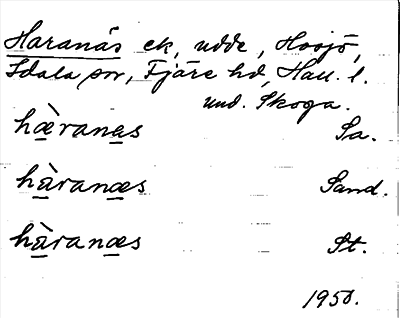 Haranäs ek, udde, Hovjö,
Idala sn, Fjäre hd, Hall. l.
und. Skoga.
hæ̀ranæs Sa.
hàranæs Sand.
hàranæs St.
1950.